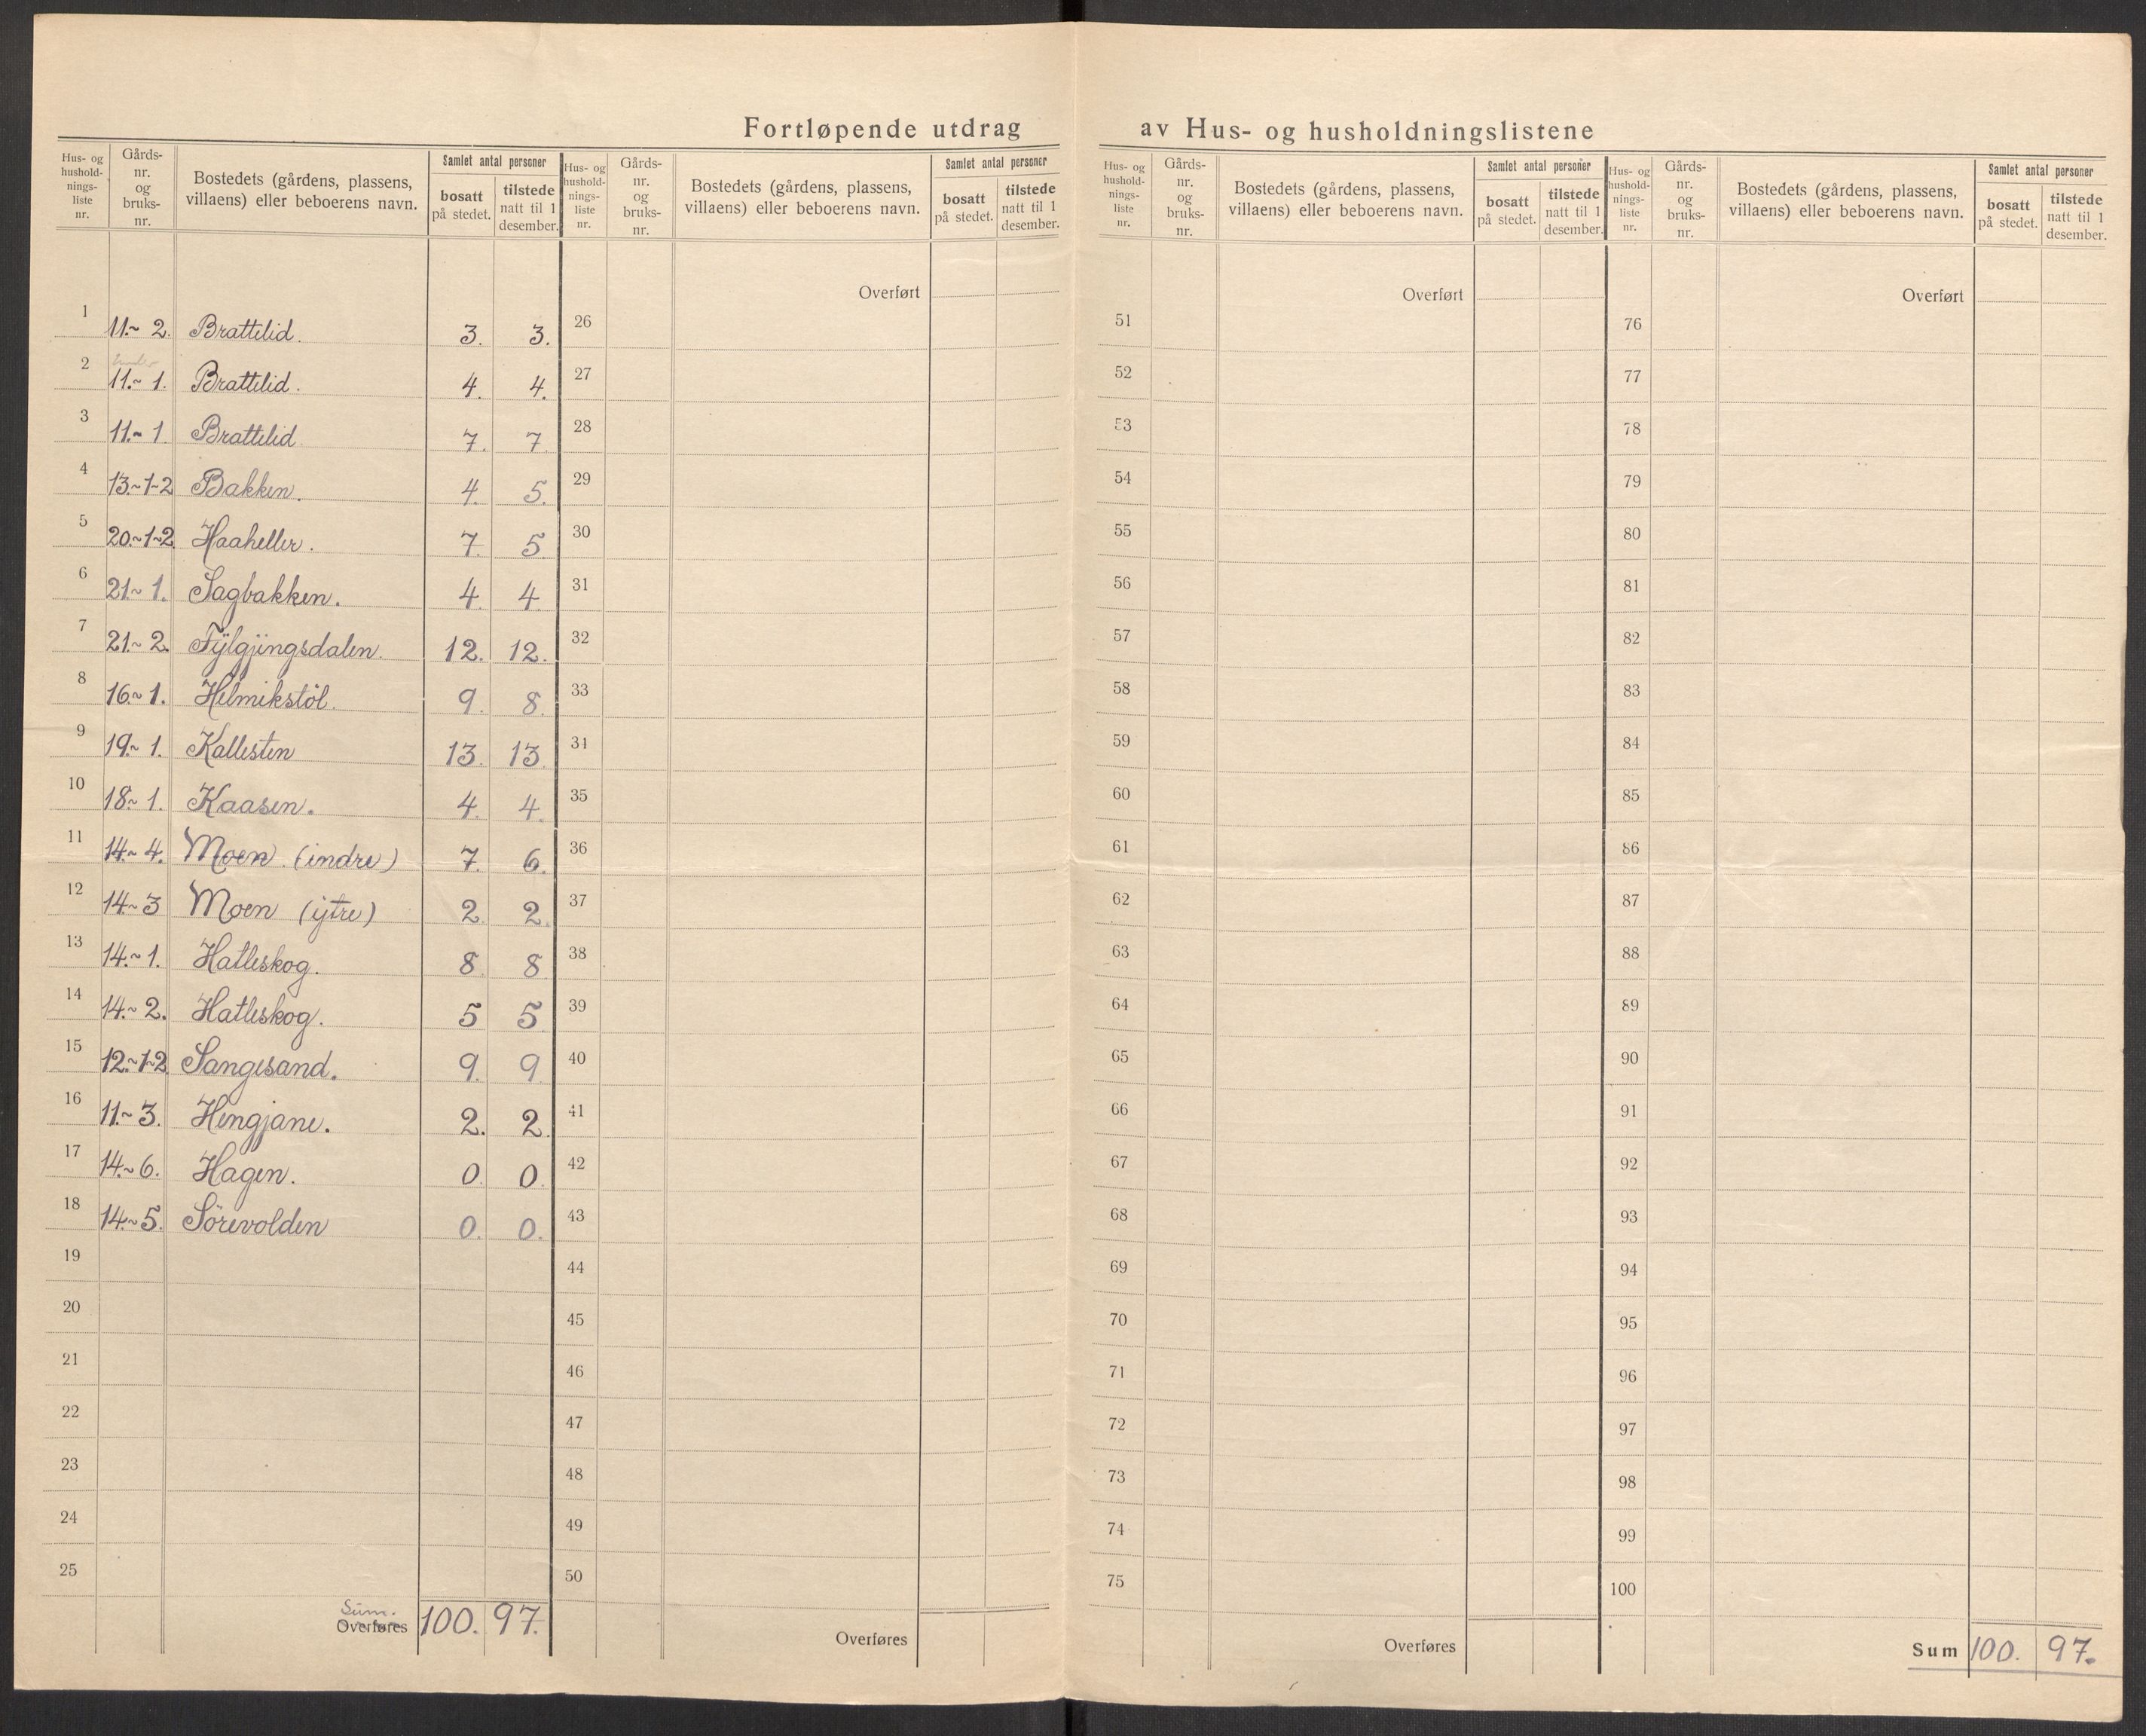 Fortløpende utdrag av Hus- og husholdningslistene
Hus- og husholdningsliste nr. | Gårds-nr. og bruks-nr. | Bostedets (gårdens, plassens, villaens) eller beboerens navn. | Samlet antal personer | bosatt på stedet. | tilstede natt til 1 desember.
1 11.~ 2. Brattelid. 3. 3.
under
2 11.~ 1. Brattelid. 4. 4.
3 11.~ 1. Brattelid 7. 7
4 13.~1~2 Bakken. 4. 5.
5 20.~1~2. Haaheller. 7. 5
6 21.~ 1. Sagbakken. 4. 4
7 21.~ 2. Fÿlgjingsdalen. 12. 12.
8 16.~ 1. Helmikstöl. 9. 8.
9 19.~ 1. Kallesten 13. 13
10 18.~ 1. Kaasen. 4. 4.
11 14.~ 4. Moen. (indre) 7. 6.
12 14.~ 3 Moen (ÿtre) 2. 2.
13 14.~ 1. Hatleskog. 8. 8
14 14.~ 2. Hatleskog. 5 5
15 12.~1~2 Sangesand. 9. 9
16 11.~ 3. Hengjane. 2. 2
17 14.~ 6. Hagen. 0. 0.
18 14.~ 5. Sörevolden 0. 0.
19
20
21
22
23
24
25
Sum.
Overføres 100. 97.
Hus- og husholdningsliste nr. | Gårds-nr. og bruks-nr. | Bostedets (gårdens, plassens, villaens) eller beboerens navn. | Samlet antal personer | bosatt på stedet. | tilstede natt til 1 desember.
Overført
26
27
28
29
30
31
32
33
34
35
36
37
38
39
40
41
42
43
44
45
46
47
48
49
50
Overføres
Hus- og husholdningsliste nr. | Gårds-nr. og bruks-nr. | Bostedets (gårdens, plassens, villaens) eller beboerens navn. | Samlet antal personer | bosatt på stedet. | tilstede natt til 1 desember.
Overført
51
52
53
54
55
56
57
58
59
60
61
62
63
64
65
66
67
68
69
70
71
72
73
74
75
Overføres
Hus- og husholdningsliste nr. | Gårds-nr. og bruks-nr. | Bostedets (gårdens, plassens, villaens) eller beboerens navn. | Samlet antal personer | bosatt på stedet. | tilstede natt til 1 desember.
Overført
76
77
78
79
80
81
82
83
84
85
86
87
88
89
90
91
92
93
94
95
96
97
98
99
100
Sum 100. 97.